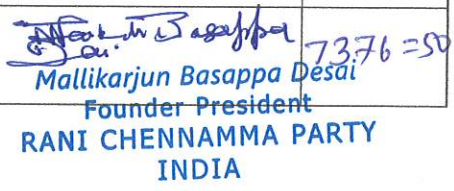 Basappa
7376=50
Mallikarjun Basappa Desai
Founder President
RANI CHENNAMMA PARTY
INDIA